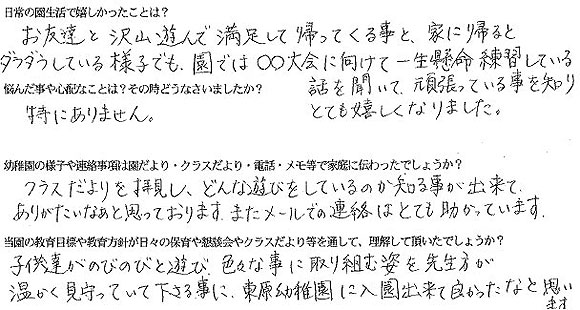 日常の園生活で嬉しかったことは？
お友達と沢山遊んで満足して帰ってくる事と、家に帰ると
ダラダラしている様子でも、園では○○大会に向けて一生懸命練習している
悩んだ事や心配なことは？その時どうなさいましたか？
話を聞いて、頑張っている事を知り
特にありません。
とても嬉しくなりました。
幼稚園の様子や連絡事項は園だより・クラスだより・電話・メモ等で家庭に伝わったでしょうか？
クラスだよりを拝見し、どんな遊びをしているのか知る事が出来て、
ありがたいなぁと思っております。またメールでの連絡はとても助かっています。
当園の教育目標や教育方針が日々の保育や懇談会やクラスだより等を通して、理解して頂いたでしょうか？
子供達がのびのびと遊び、色々な事に取り組む姿を先生方が
温かく見守っていて下さる事に、東原幼稚園に入園出来て良かったなと思い
ます